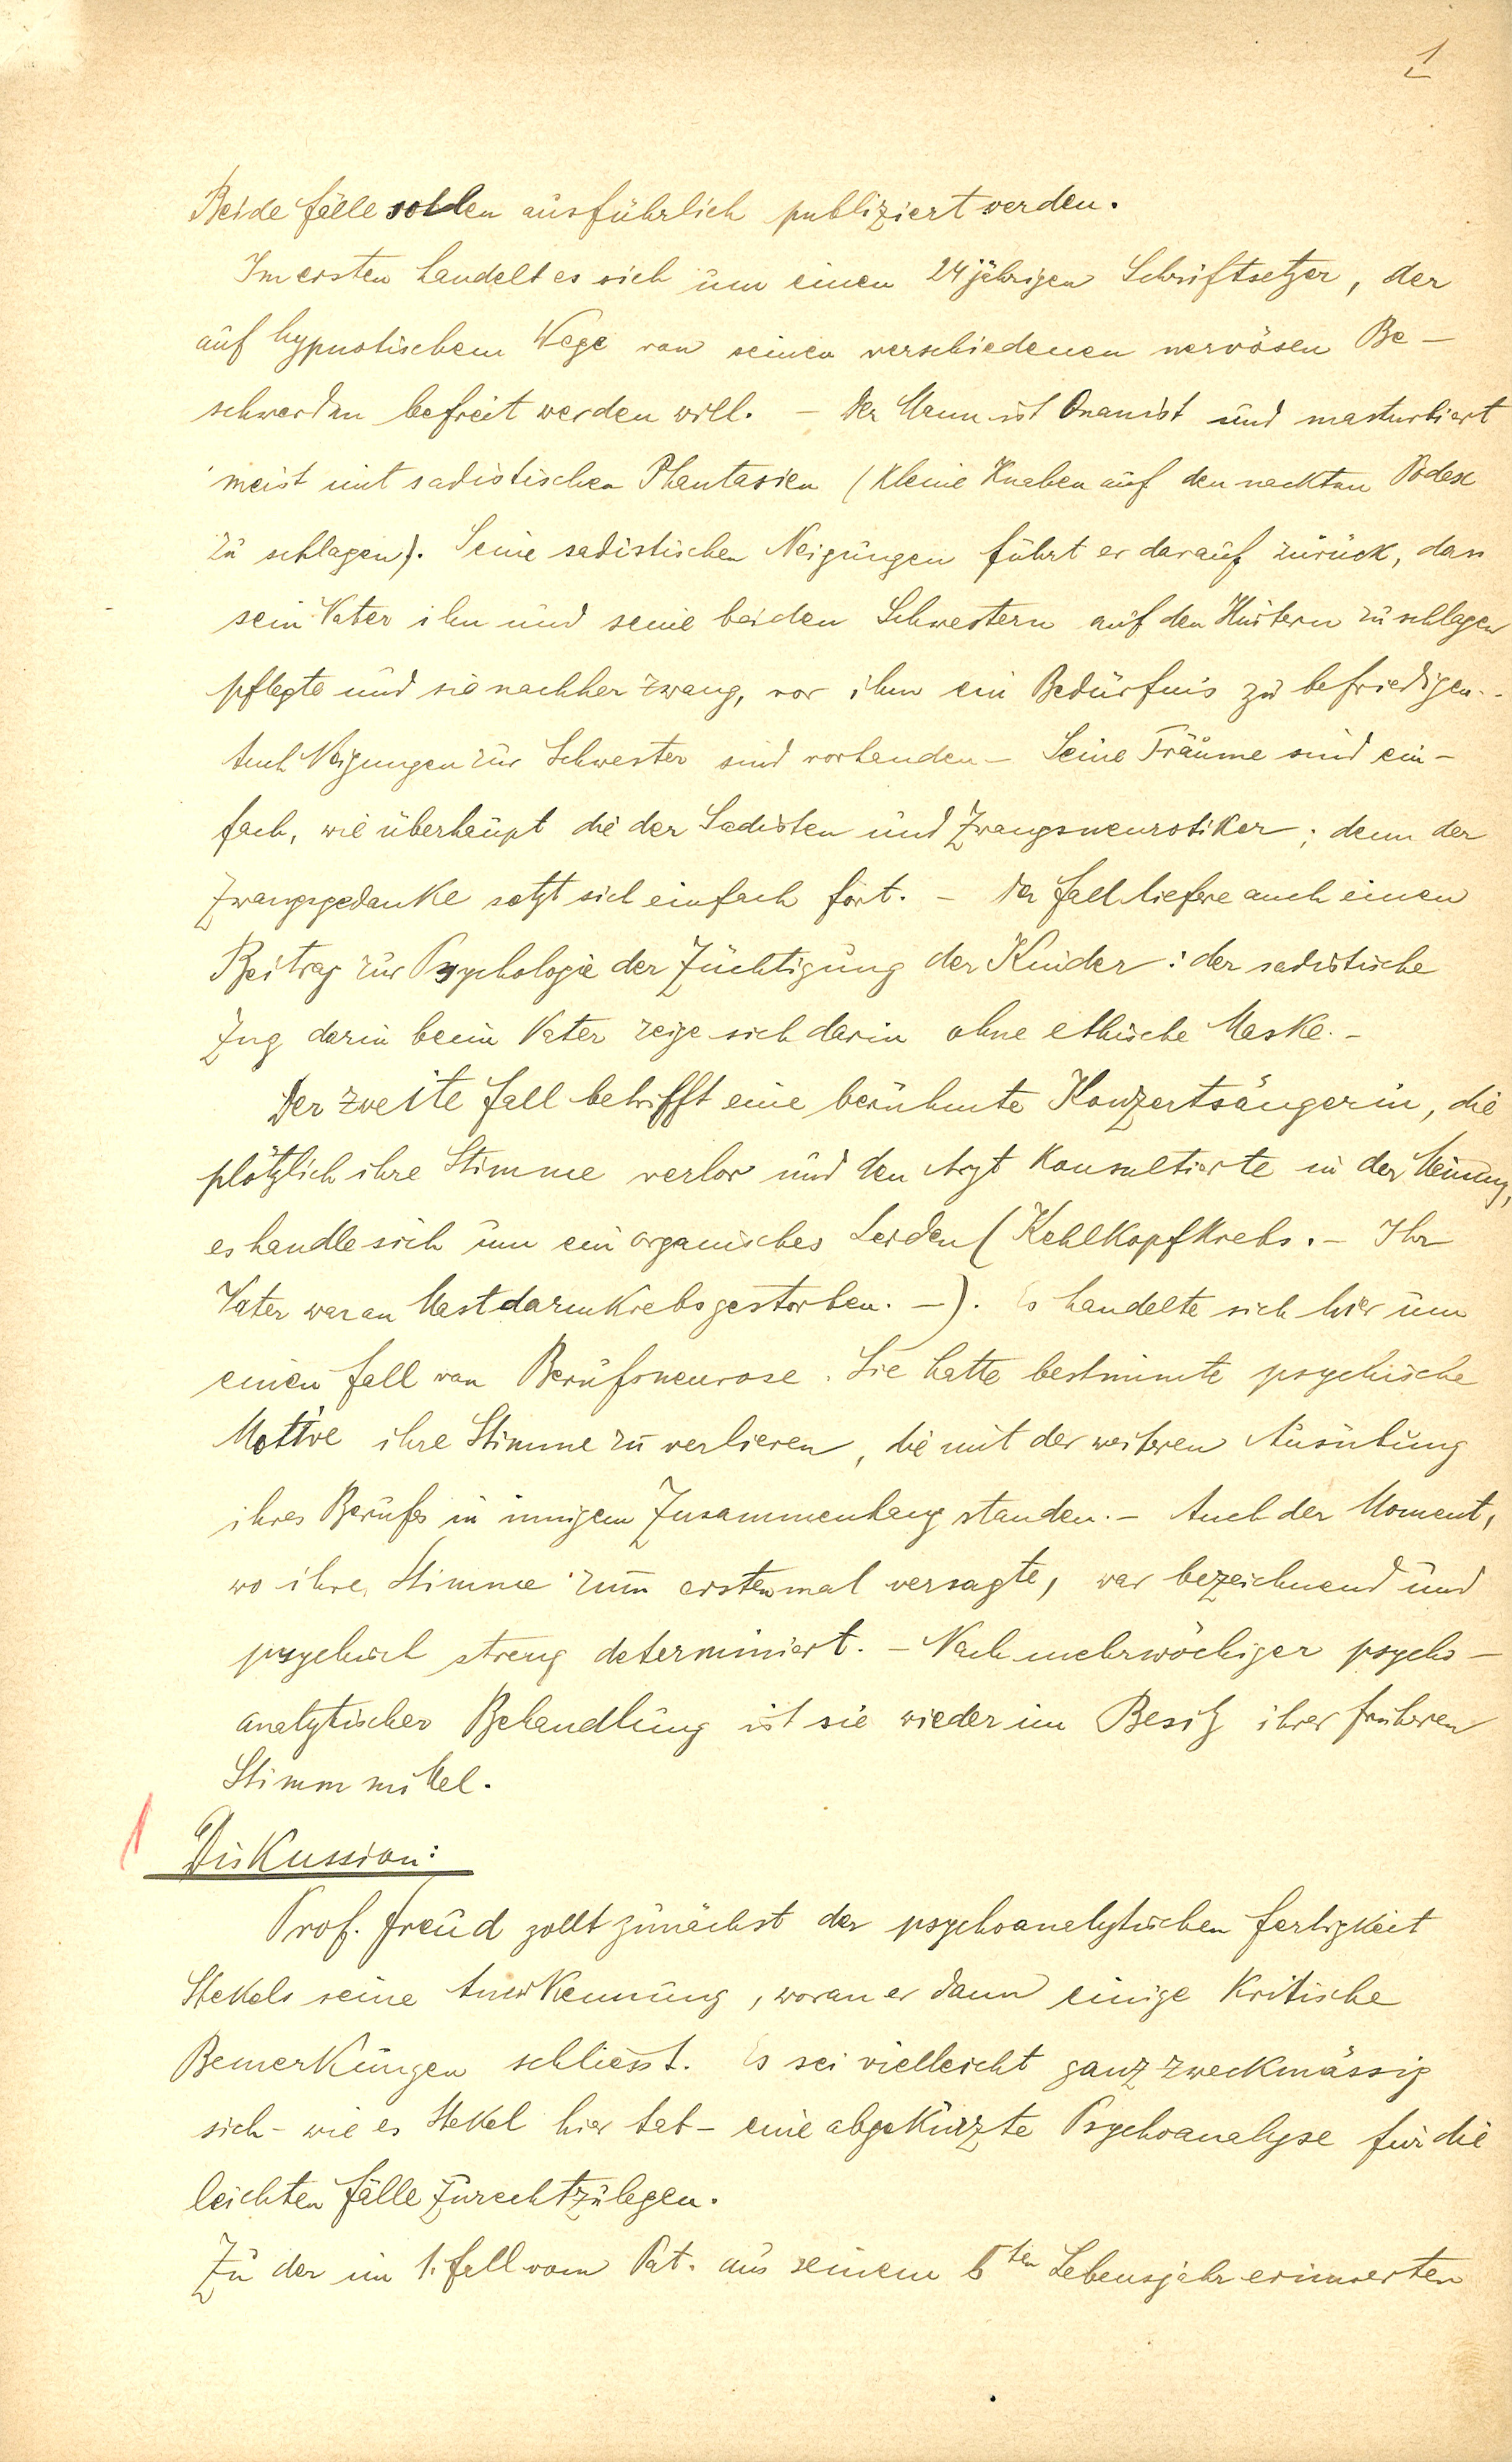 1
Beide Fälle sollen ausführlich publiziert werden.
Im ersten handelt es sich um einen 24jährigen Schriftsetzer, der
auf hypnotischem Wege von seinen verschiedenen nervösen Be-
schwerden befreit werden will. – Der Mann ist Onanist und masturbiert
meist mit sadistischen Phantasien (kleine Knaben auf den nackten Podex
zu schlagen). Seine sadistischen Neigungen führt er darauf zurück, dass
sein Vater ihn und seine beiden Schwestern auf den Hintern zu schlagen
pflegte und sie nachher zwang, vor ihm ein Bedürfnis zu befriedigen. -
Auch Neigungen zur Schwester sind vorhanden – Seine Träume sind ein-
fach, wie überhaupt die der Sadisten und Zwangsneurotiker; denn der
Zwangsgedanke setzt sich einfach fort. – Der Fall liefere auch einen
Beitrag zur Psychologie der Züchtigung der Kinder: der sadistische
Zug darin beim Vater zeige sich darin ohne ethische Maske. –
Der zweite Fall betrifft eine berühmte Konzertsängerin, die
plötzlich ihre Stimme verlor und den Arzt konsultierte in der Meinung,
es handle sich um ein organisches Leiden (Kehlkopfkrebs. – Ihr
Vater war an Mastdarmkrebs gestorben. –). Es handelte sich hier um
einen Fall von Berufsneurose. Sie hatte bestimmte psychische
Motive ihre Stimme zu verlieren, die mit der weiteren Ausübung
ihres Berufes in innigem Zusammenhang standen. – Auch der Moment,
wo ihre Stimme zum erstenmal versagte, war bezeichnend und
psychisch streng determiniert. – Nach mehrwöchiger psycho-
analytischer Behandlung ist sie wieder im Besitz ihrer früheren
Stimmmittel.
Diskussion:
Prof. Freud zollt zunächst der psychoanalytischen Fertigkeit
Stekels seine Anerkennung, woran er dann einige kritische
Bemerkungen schliesst. Es sei vielleicht ganz zweckmässig
sich – wie es Stekel hier tat – eine abgekürzte Psychoanalyse für die
leichten Fälle zurechtzulegen.
Zu der im 1. Fall vom Pat. aus seinem 6ten Lebensjahr erinnerten